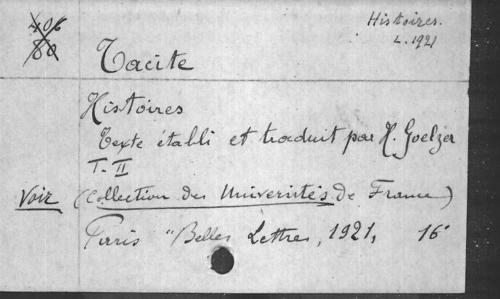 406
80
Histoires.
L. 1921
Tacite
Histoires
Texte établi et traduit par H. Goelzer
T. II
Voir (Collection des Universités de France)
Paris "Belles Lettres, 1921, 16°